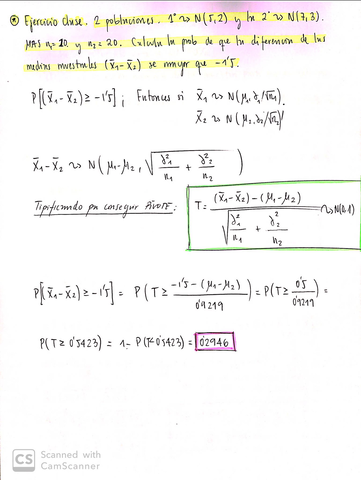 * Ejercicio Clase. 2 poblaciones. 1ª ~> N(5,2) y la 2ª ~> N(7,3).
MAS n₁=20 y n₂=20. Calcula la prob de que la diferencia de las
medias muestrales (x̄₁-x̄₂) se mayor que -1'5.
P[(x̄₁-x̄₂) ≥ -1'5] ; Entonces si x̄₁ ~> N(μ₁, σ₁/√n₁)
x̄₂ ~> N(μ₂, σ₂/√n₂)
x̄₁-x̄₂ ~> N(μ₁-μ₂, √(σ₁²/n₁ + σ₂²/n₂))
Tipificando pa conseguir PIVOTE: T = ((x̄₁-x̄₂) - (μ₁-μ₂)) / √(σ₁²/n₁ + σ₂²/n₂) ~> N(0,1)
P[(x̄₁-x̄₂) ≥ -1'5] = P(T ≥ (-1'5-(μ₁-μ₂))/0'9219) = P(T ≥ 0'5/0'9219) =
P(T ≥ 0'5423) = 1- P(T<0'5423) = 0'2946
CS Scanned with
CamScanner